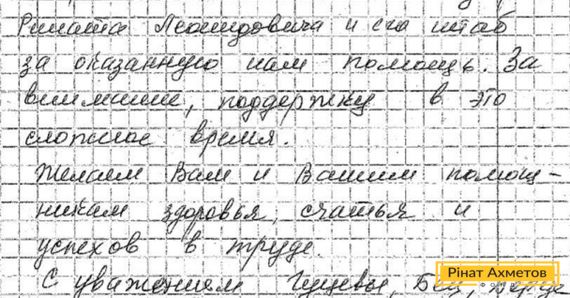 Рината Леонидовича и его штаб
за оказанную нам помощь. За
внимание, поддержку в это
сложное время.
Желаем Вам и Вашим помощ-
никам здоровья, счастья и
успехов в труде.
С уважением
Рінат Ахметов
ФОНД